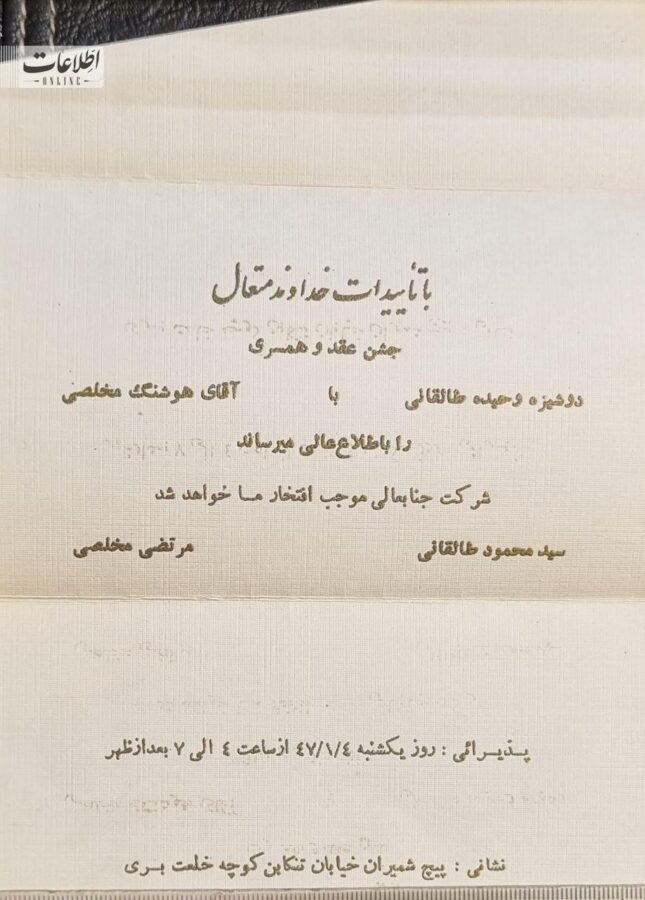 اطلاعات
ONLINE
با تأییدات خداوند متعال
جشن عقد و همسری
دوشیزه وحیده طالقانی با آقای هوشنگ مخلصی
را باطلاع عالی میرساند
شرکت جنابعالی موجب افتخار ما خواهد شد
سید محمود طالقانی مرتضی مخلصی
پذیرائی : روز یکشنبه ۴۷/۱/۴ از ساعت ۴ الی ۷ بعدازظهر
نشانی : پیچ شمیران خیابان تنکابن کوچه خلعت بری